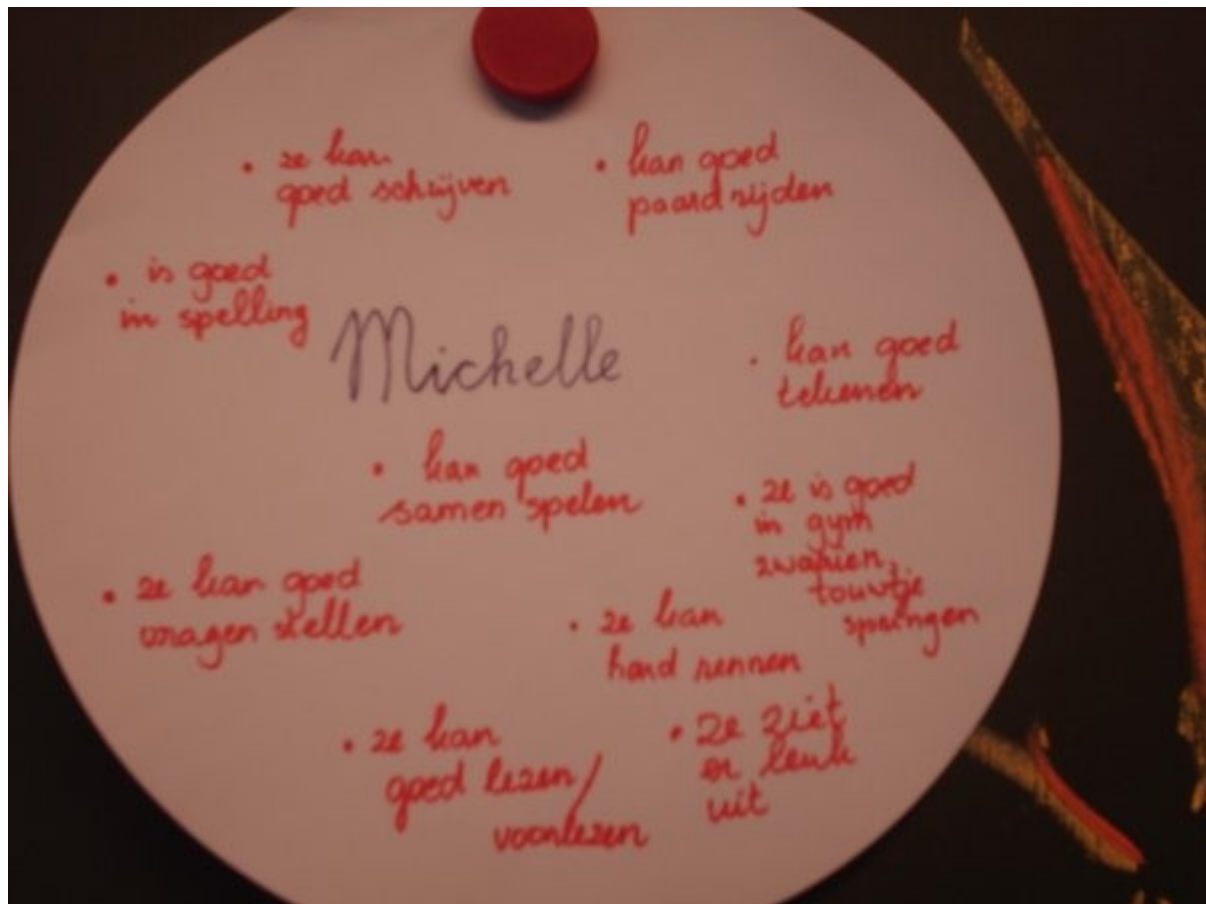 • ze kan
goed schrijven
• kan goed
paardrijden
• is goed
in spelling
Michelle
• kan goed
tekenen
• kan goed
samen spelen
• ze is goed
in gym
zwaaien,
touwtje
springen
• ze kan goed
vragen stellen
• ze kan
hard rennen
• ze kan
goed lezen/
voorlezen
• ze ziet
er leuk
uit